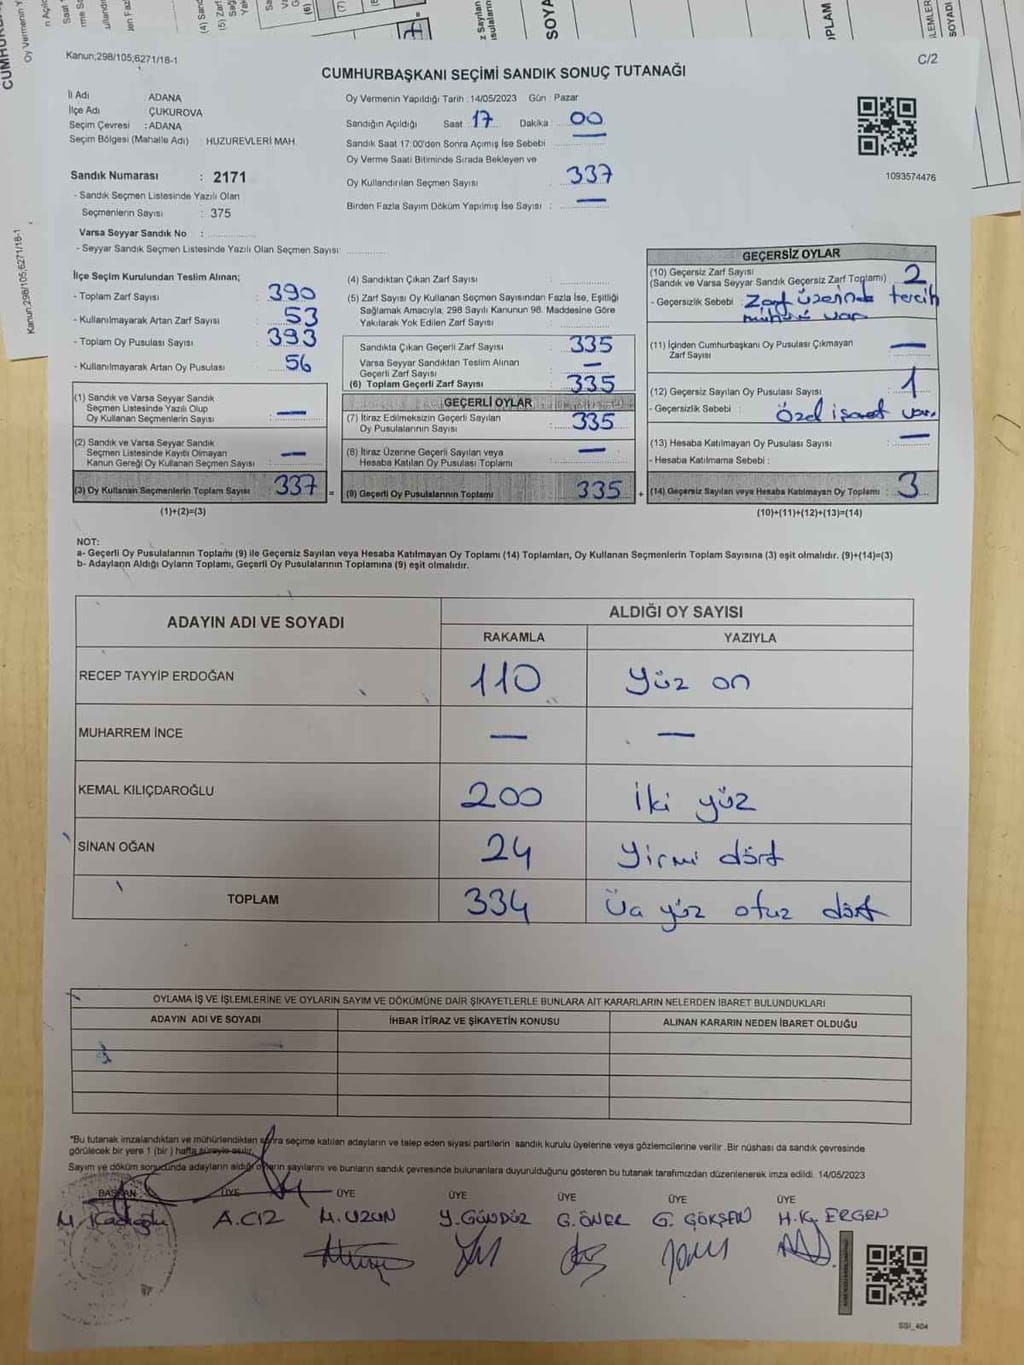 Kanun;298/105,6271/18-1
C/2
CUMHURBAŞKANI SEÇİMİ SANDIK SONUÇ TUTANAĞI
İl Adı : ADANA
İlçe Adı : ÇUKUROVA
Seçim Çevresi : ADANA
Seçim Bölgesi (Mahalle Adı) : HUZUREVLERİ MAH.
Sandık Numarası : 2171
- Sandık Seçmen Listesinde Yazılı Olan
Seçmenlerin Sayısı : 375
Varsa Seyyar Sandık No :
- Seyyar Sandık Seçmen Listesinde Yazılı Olan Seçmen Sayısı:
Oy Vermenin Yapıldığı Tarih : 14/05/2023 Gün : Pazar
Sandığın Açıldığı Saat 17 Dakika 00
Sandık Saat 17:00'den Sonra Açımış İse Sebebi —
Oy Verme Saati Bitiminde Sırada Bekleyen ve
Oy Kullandırılan Seçmen Sayısı : 337
Birden Fazla Sayım Döküm Yapılmış İse Sayısı : —
1093574476
İlçe Seçim Kurulundan Teslim Alınan;
- Toplam Zarf Sayısı : 390
- Kullanılmayarak Artan Zarf Sayısı : 53
- Toplam Oy Pusulası Sayısı : 393
- Kullanılmayarak Artan Oy Pusulası : 56
(1) Sandık ve Varsa Seyyar Sandık
Seçmen Listesinde Yazılı Olup
Oy Kullanan Seçmenlerin Sayısı : —
(2) Sandık ve Varsa Seyyar Sandık
Seçmen Listesinde Kayıtlı Olmayan
Kanun Gereği Oy Kullanan Seçmen Sayısı : —
(3) Oy Kullanan Seçmenlerin Toplam Sayısı : 337 =
(1)+(2)=(3)
(4) Sandıktan Çıkan Zarf Sayısı :
(5) Zarf Sayısı Oy Kullanan Seçmen Sayısından Fazla İse, Eşitliği
Sağlamak Amacıyla; 298 Sayılı Kanunun 98. Maddesine Göre
Yakılarak Yok Edilen Zarf Sayısı :
Sandıkta Çıkan Geçerli Zarf Sayısı : 335
Varsa Seyyar Sandıktan Teslim Alınan
Geçerli Zarf Sayısı : —
(6) Toplam Geçerli Zarf Sayısı : 335
GEÇERLİ OYLAR
(7) İtiraz Edilmeksizin Geçerli Sayılan
Oy Pusulalarının Sayısı : 335
(8) İtiraz Üzerine Geçerli Sayılan veya
Hesaba Katılan Oy Pusulası Toplamı : —
(9) Geçerli Oy Pusulalarının Toplamı : 335 +
GEÇERSİZ OYLAR
(10) Geçersiz Zarf Sayısı
(Sandık ve Varsa Seyyar Sandık Geçersiz Zarf Toplamı) : 2
- Geçersizlik Sebebi : Zarf üzerinde tercih
mühürü var
(11) İçinden Cumhurbaşkanı Oy Pusulası Çıkmayan
Zarf Sayısı : —
(12) Geçersiz Sayılan Oy Pusulası Sayısı : 1
- Geçersizlik Sebebi : Özel işaret var.
(13) Hesaba Katılmayan Oy Pusulası Sayısı : —
- Hesaba Katılmama Sebebi :
(14) Geçersiz Sayılan veya Hesaba Katılmayan Oy Toplamı : 3
(10)+(11)+(12)+(13)=(14)
NOT:
a- Geçerli Oy Pusulalarının Toplamı (9) ile Geçersiz Sayılan veya Hesaba Katılmayan Oy Toplamı (14) Toplamları, Oy Kullanan Seçmenlerin Toplam Sayısına (3) eşit olmalıdır. (9)+(14)=(3)
b- Adayların Aldığı Oyların Toplamı, Geçerli Oy Pusulalarının Toplamına (9) eşit olmalıdır.
ADAYIN ADI VE SOYADI
ALDIĞI OY SAYISI
RAKAMLA YAZIYLA
RECEP TAYYİP ERDOĞAN 110 yüz on
MUHARREM İNCE — —
KEMAL KILIÇDAROĞLU 200 İki yüz
SİNAN OĞAN 24 yirmi dört
TOPLAM 334 Üç yüz otuz dört
OYLAMA İŞ VE İŞLEMLERİNE VE OYLARIN SAYIM VE DÖKÜMÜNE DAİR ŞİKAYETLERLE BUNLARA AİT KARARLARIN NELERDEN İBARET BULUNDUKLARI
ADAYIN ADI VE SOYADI İHBAR İTİRAZ VE ŞİKAYETİN KONUSU ALINAN KARARIN NEDEN İBARET OLDUĞU
*Bu tutanak imzalandıktan ve mühürlendikten sonra seçime katılan adayların ve talep eden siyasi partilerin sandık kurulu üyelerine veya gözlemcilerine verilir .Bir nüshası da sandık çevresinde
görülecek bir yere 1 (bir ) hafta süreyle asılır.
Sayım ve döküm sonucunda adayların aldığı oyların sayılarını ve bunların sandık çevresinde bulunanlara duyurulduğunu gösteren bu tutanak tarafımızdan düzenlenerek imza edildi. 14/05/2023
BAŞKAN ÜYE ÜYE ÜYE ÜYE ÜYE ÜYE
M. Kadıoğlu A.CIZ M.UZUN Y.GÜNDÜZ G.ÖNER G. GÖKŞEN H.K. ERGEN
SSI_404